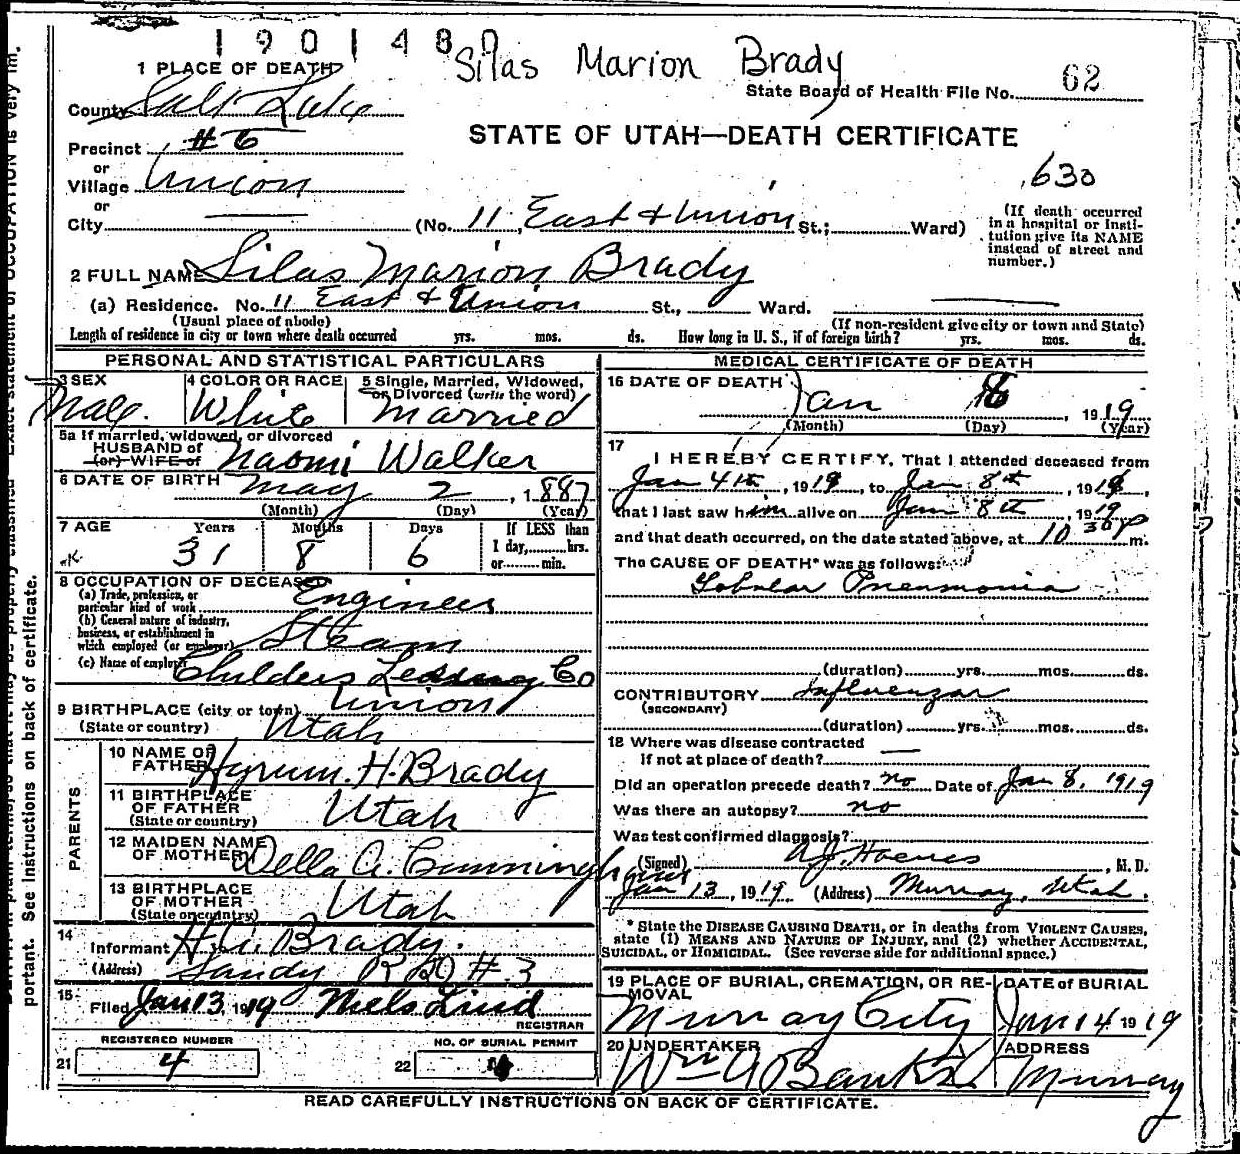 1901480
Silas Marion Brady
1 PLACE OF DEATH
State Board of Health File No. 62
County Salt Lake
STATE OF UTAH—DEATH CERTIFICATE
Precinct #6
or
Village Union
630
or
City (No. 11 East & Union St.; Ward)
(If death occurred in a hospital or insti-
tution give its NAME instead of street and number.)
2 FULL NAME Silas Marion Brady
(a) Residence. No. 11 East & Union St., Ward.
(Usual place of abode) (If non-resident give city or town and State)
Length of residence in city or town where death occurred yrs. mos. ds. How long in U. S., if of foreign birth? yrs. mos. ds.
PERSONAL AND STATISTICAL PARTICULARS
3 SEX Male
4 COLOR OR RACE White
5 Single, Married, Widowed, or Divorced (write the word) Married
5a If married, widowed, or divorced
HUSBAND of
(or) WIFE of Naomi Walker
6 DATE OF BIRTH May 2, 1887
(Month) (Day) (Year)
7 AGE Years 31 Months 8 Days 6
If LESS than 1 day, hrs. or min.
8 OCCUPATION OF DECEASED
(a) Trade, profession, or particular kind of work Engineer
(b) General nature of industry, business, or establishment in which employed (or employer) Steam
(c) Name of employer Childers Co
9 BIRTHPLACE (city or town) Union
(State or country) Utah
PARENTS
10 NAME OF FATHER Hyrum. H. Brady
11 BIRTHPLACE OF FATHER (State or country) Utah
12 MAIDEN NAME OF MOTHER Della A. Cunningham
13 BIRTHPLACE OF MOTHER (State or country) Utah
14 Informant Brady.
(Address) Sandy R #3
15 Filed Jan 13, 1919 Niels Lind
REGISTRAR
REGISTERED NUMBER
21 4
NO. OF BURIAL PERMIT
22 4
MEDICAL CERTIFICATE OF DEATH
16 DATE OF DEATH Jan , 1919
(Month) (Day) (Year)
17 I HEREBY CERTIFY, That I attended deceased from
Jan 4th, 1919, to Jan 8th, 1919
that I last saw him alive on Jan 8th 1919
and that death occurred, on the date stated above, at 10 30 P m.
The CAUSE OF DEATH* was as follows:
Lobular Pneumonia
(duration) yrs. mos. ds.
CONTRIBUTORY Influenza
(SECONDARY)
(duration) yrs. mos. ds.
18 Where was disease contracted
if not at place of death?
Did an operation precede death? no Date of Jan 8, 1919
Was there an autopsy? no
Was test confirmed diagnosis?
(Signed) , M. D.
Jan 13, 1919 (Address) Murray, Utah.
* State the DISEASE CAUSING DEATH, or in deaths from VIOLENT CAUSES,
state (1) MEANS AND NATURE OF INJURY, and (2) whether ACCIDENTAL,
SUICIDAL, or HOMICIDAL. (See reverse side for additional space.)
19 PLACE OF BURIAL, CREMATION, OR RE-
MOVAL
Murray City
DATE OF BURIAL
Jan 14 1919
20 UNDERTAKER
Wm A Banks
ADDRESS
Murray
READ CAREFULLY INSTRUCTIONS ON BACK OF CERTIFICATE.
portant. See instructions on back of certificate.